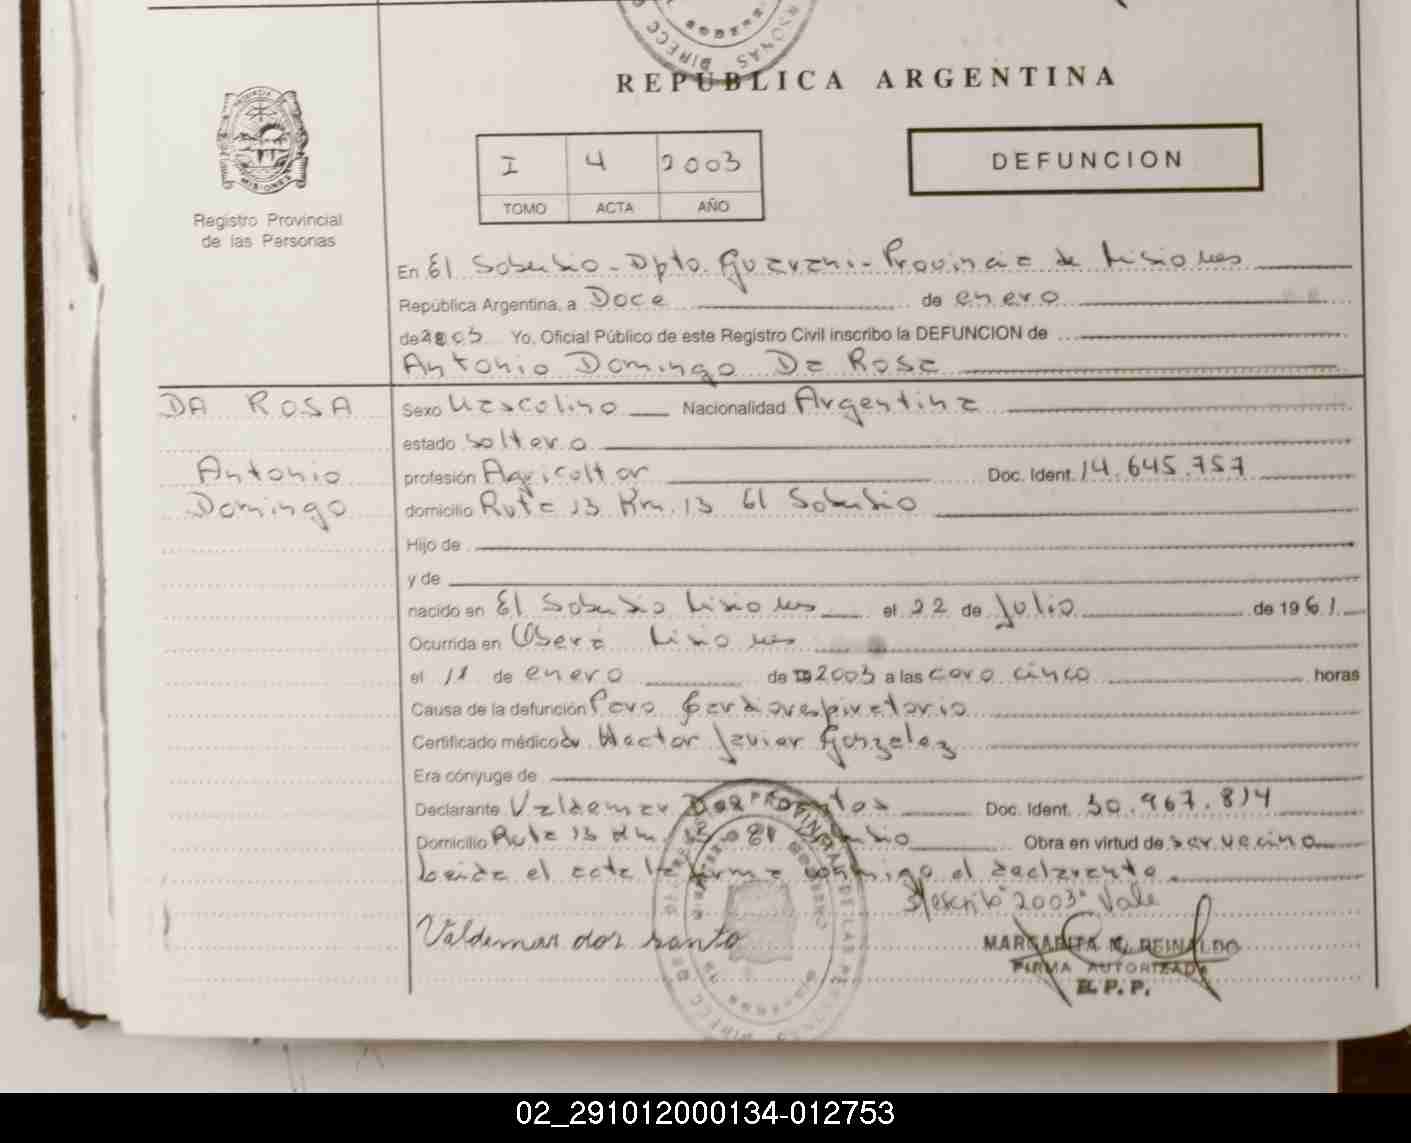 REPUBLICA ARGENTINA
I 4 2003
TOMO ACTA AÑO
DEFUNCION
Registro Provincial
de las Personas
En El Soberbio - Dpto. Guarani - Provincia de Misiones
República Argentina, a Doce de enero
de 2003 Yo, Oficial Público de este Registro Civil inscribo la DEFUNCION de
Antonio Domingo Da Rosa
DA ROSA
Antonio
Domingo
Sexo Masculino Nacionalidad Argentina
estado Soltero
profesión Agricultor Doc. Ident. 14.645.757
domicilio Ruta 13 Km. 13 El Soberbio
Hijo de
y de
nacido en El Soberbio Misiones el 22 de Julio de 1961
Ocurrida en Oberá Misiones
el 11 de enero de 19 2003 a las cero cinco horas
Causa de la defunción Paro Cardiorespiratorio
Certificado médico dr Hector Javier Gonzalez
Era cónyuge de
Declarante Valdemar Dos Santos Doc. Ident. 30.967.814
Domicilio Ruta 13 Km El Soberbio Obra en virtud de ser vecino
Leida el acta la firma conmigo el declarante
S/escrito "2003" Vale
Valdemar dos santo
MARGARITA M. REINALDO
FIRMA AUTORIZADA
R. P. P.
02_291012000134-012753